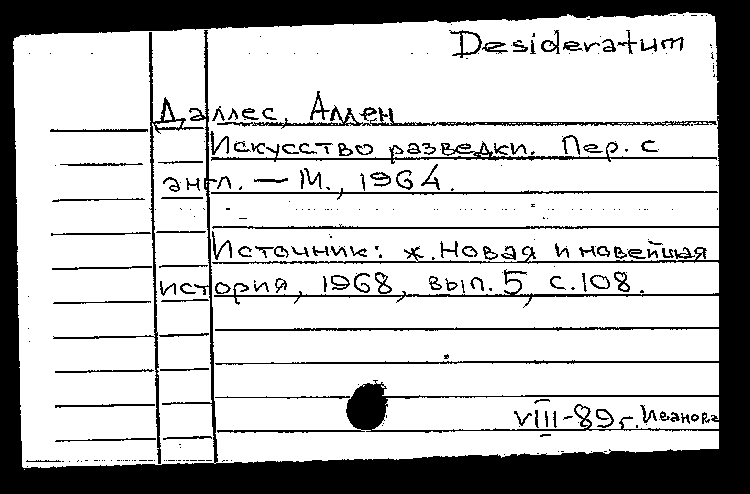 Desideratum
Даллес, Аллен
Искусство разведки. Пер. с
англ. — М., 1964.
Источник: ж. Новая и новейшая
история, 1968, вып. 5, с. 108.
VIII-89 г. Иванова